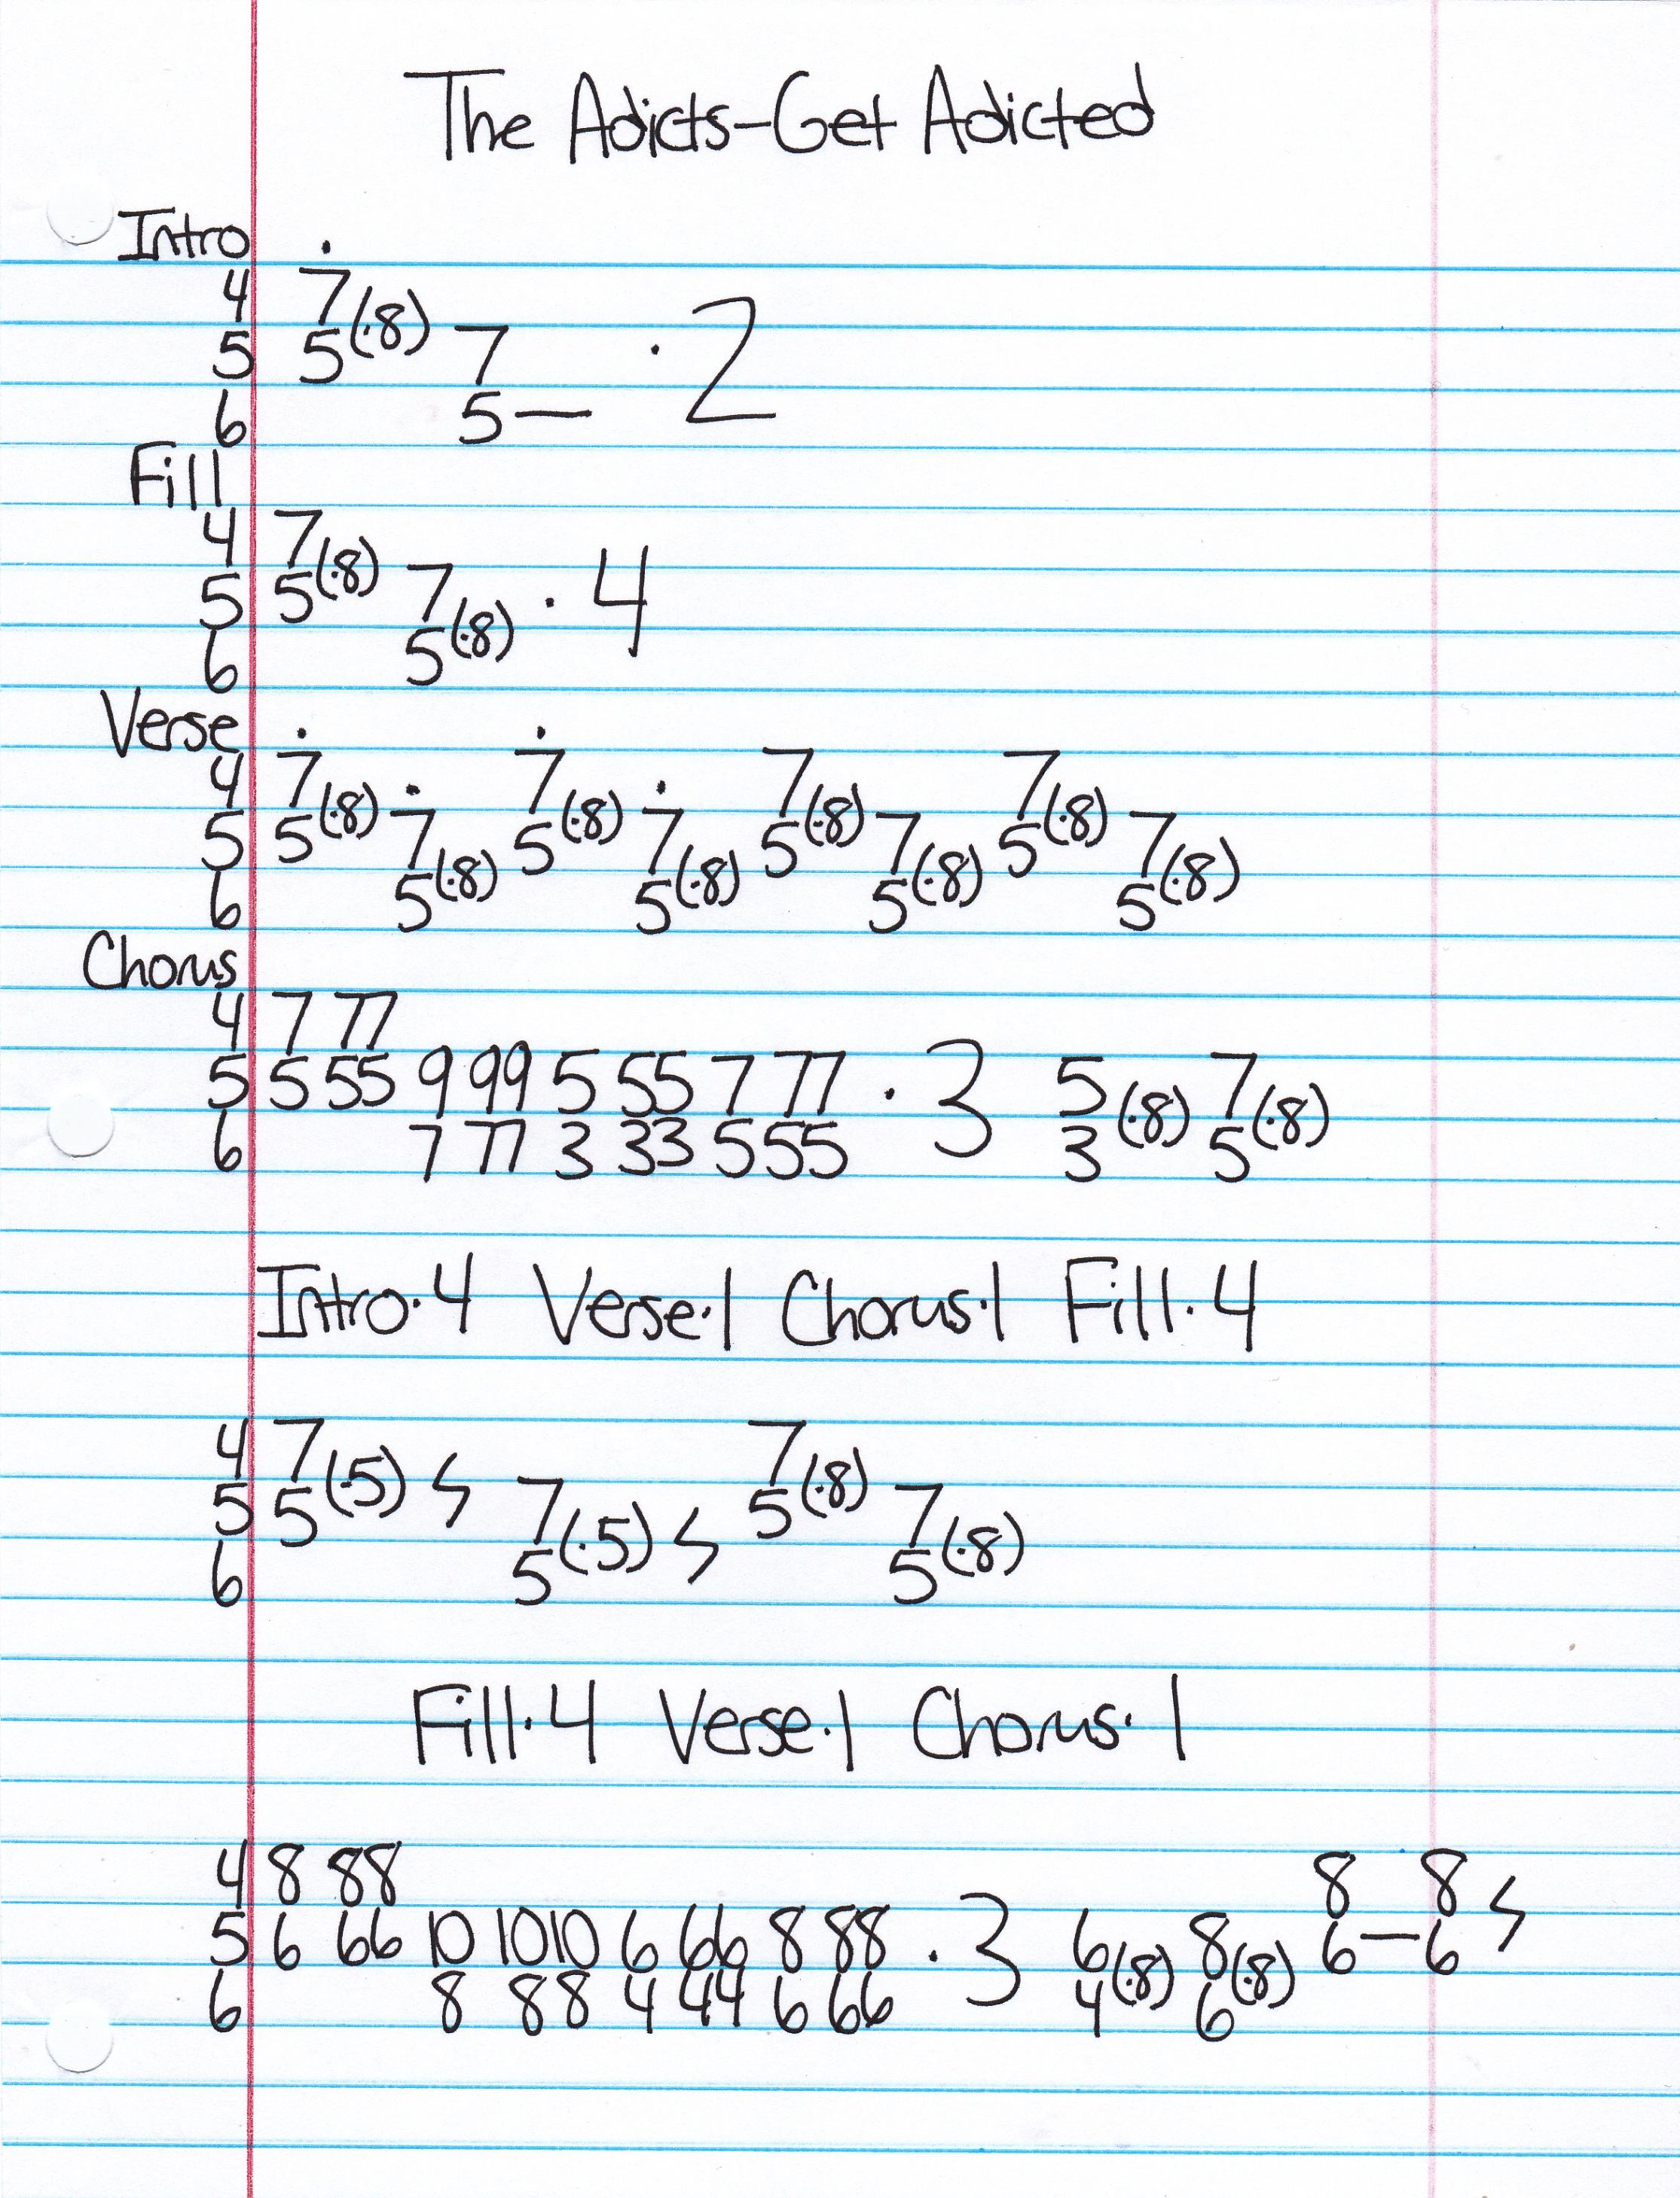 The Adicts-Get Adicted
Intro .
4 7
5 5(·8) 7 · 2
6 5—
Fill
4 7
5 5(·8) 7 · 4
6 5(·8)
Verse . .
4 7 . 7 . 7 7
5 5(·8) 7 5(·8) 7 5(·8) 7 5(·8) 7
6 5(·8) 5(·8) 5(·8) 5(·8)
Chorus
4 7 77
5 5 55 9 99 5 55 7 77 · 3 5 (·8) 7 (·8)
6 7 77 3 33 5 55 3 5
Intro·4 Verse·1 Chorus·1 Fill·4
4 7 7
5 5(·5) 7 5(·8) 7
6 5(·5) 5(·8)
Fill·4 Verse·1 Chorus·1
4 8 88 8 8
5 6 66 10 1010 6 66 8 88 · 3 6 (·8) 8 (·8) 6—6
6 8 88 4 44 6 66 4 6